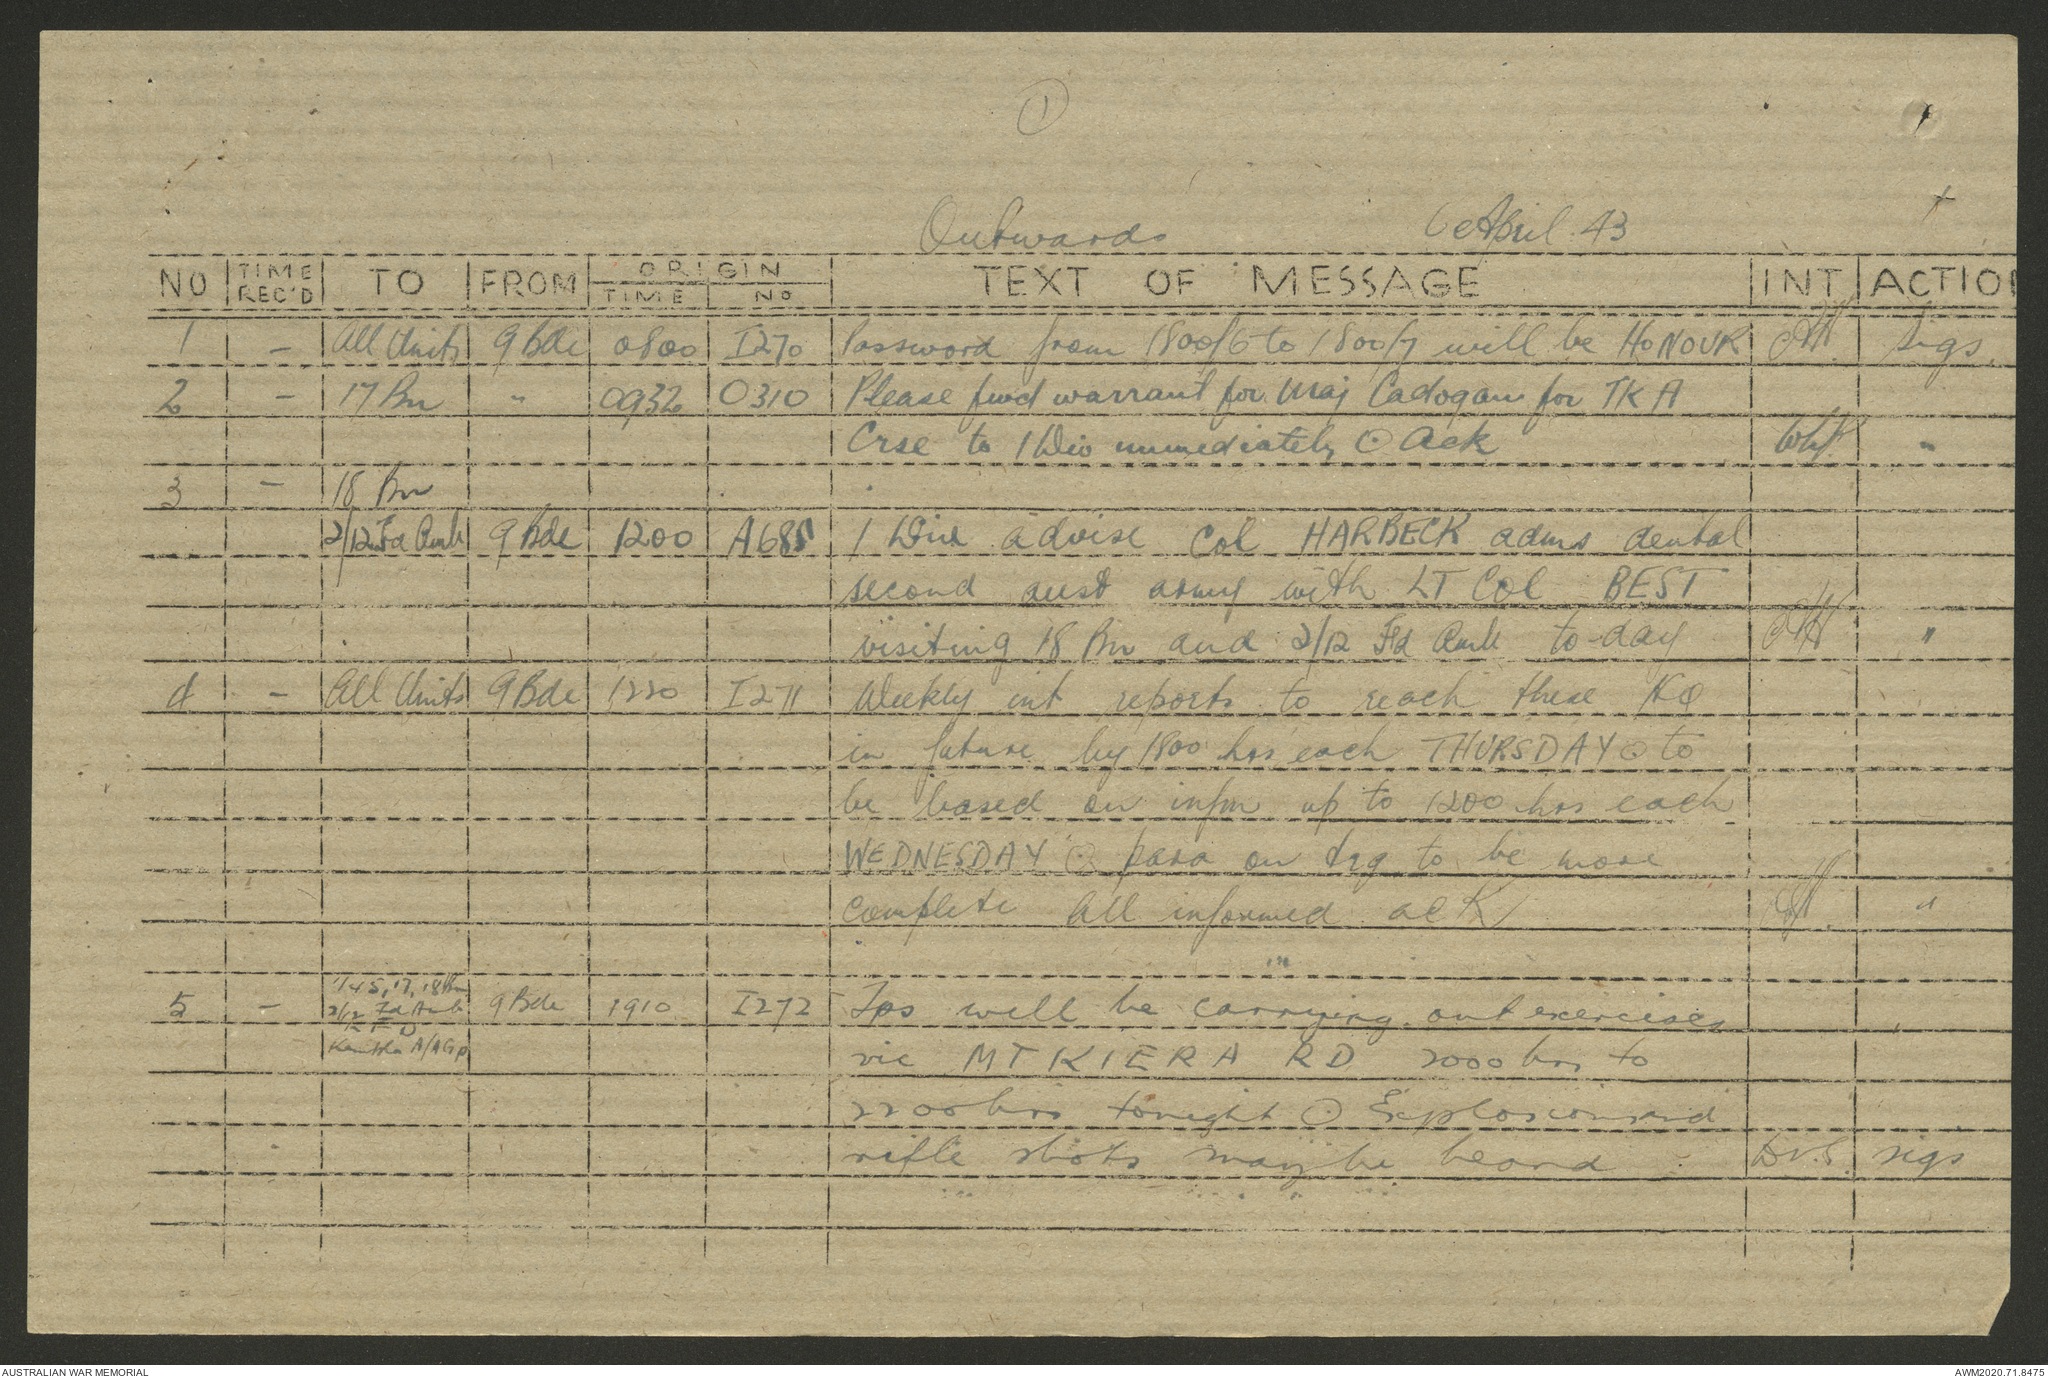 1
Outwards 6 April. 43
NO TIME REC'D TO FROM ORIGIN TIME NO TEXT OF MESSAGE INT ACTIO
1 - All Units 9 Bde 0800 I270 Password from 1800/6 to 1800/7 will be HONOUR Sigs.
2 - 17 Bn " 0932 O310 Please fwd warrant for Maj Cadogan for TKA
Crse to 1 Div immediately ⊙ Ack "
3 - 18 Bn
2/12 Fd Amb 9 Bde 1200 A685 1 Div advise Col HARBECK adms dental
second aust army with LT Col BEST
visiting 18 Bn and 2/12 Fd Amb to-day "
4 - All Units 9 Bde 1220 I271 Weekly int reports to reach these HQ
in future by 1800 hrs each THURSDAY ⊙ to
be based on infm up to 1200 hrs each
WEDNESDAY ⊙ para on trg to be more
complete All informed ack "
5 - 1/45, 17, 18 Bn 9 Bde 1910 I272 Tps will be carrying out exercises
2/12 Fd Amb
Kembla A/A Gp vic MT KIERA RD 2000 hrs to
2200 hrs tonight ⊙ Explosions and
rifle shots may be heard D.V.S. sigs
AUSTRALIAN WAR MEMORIAL AWM2020.71.8475